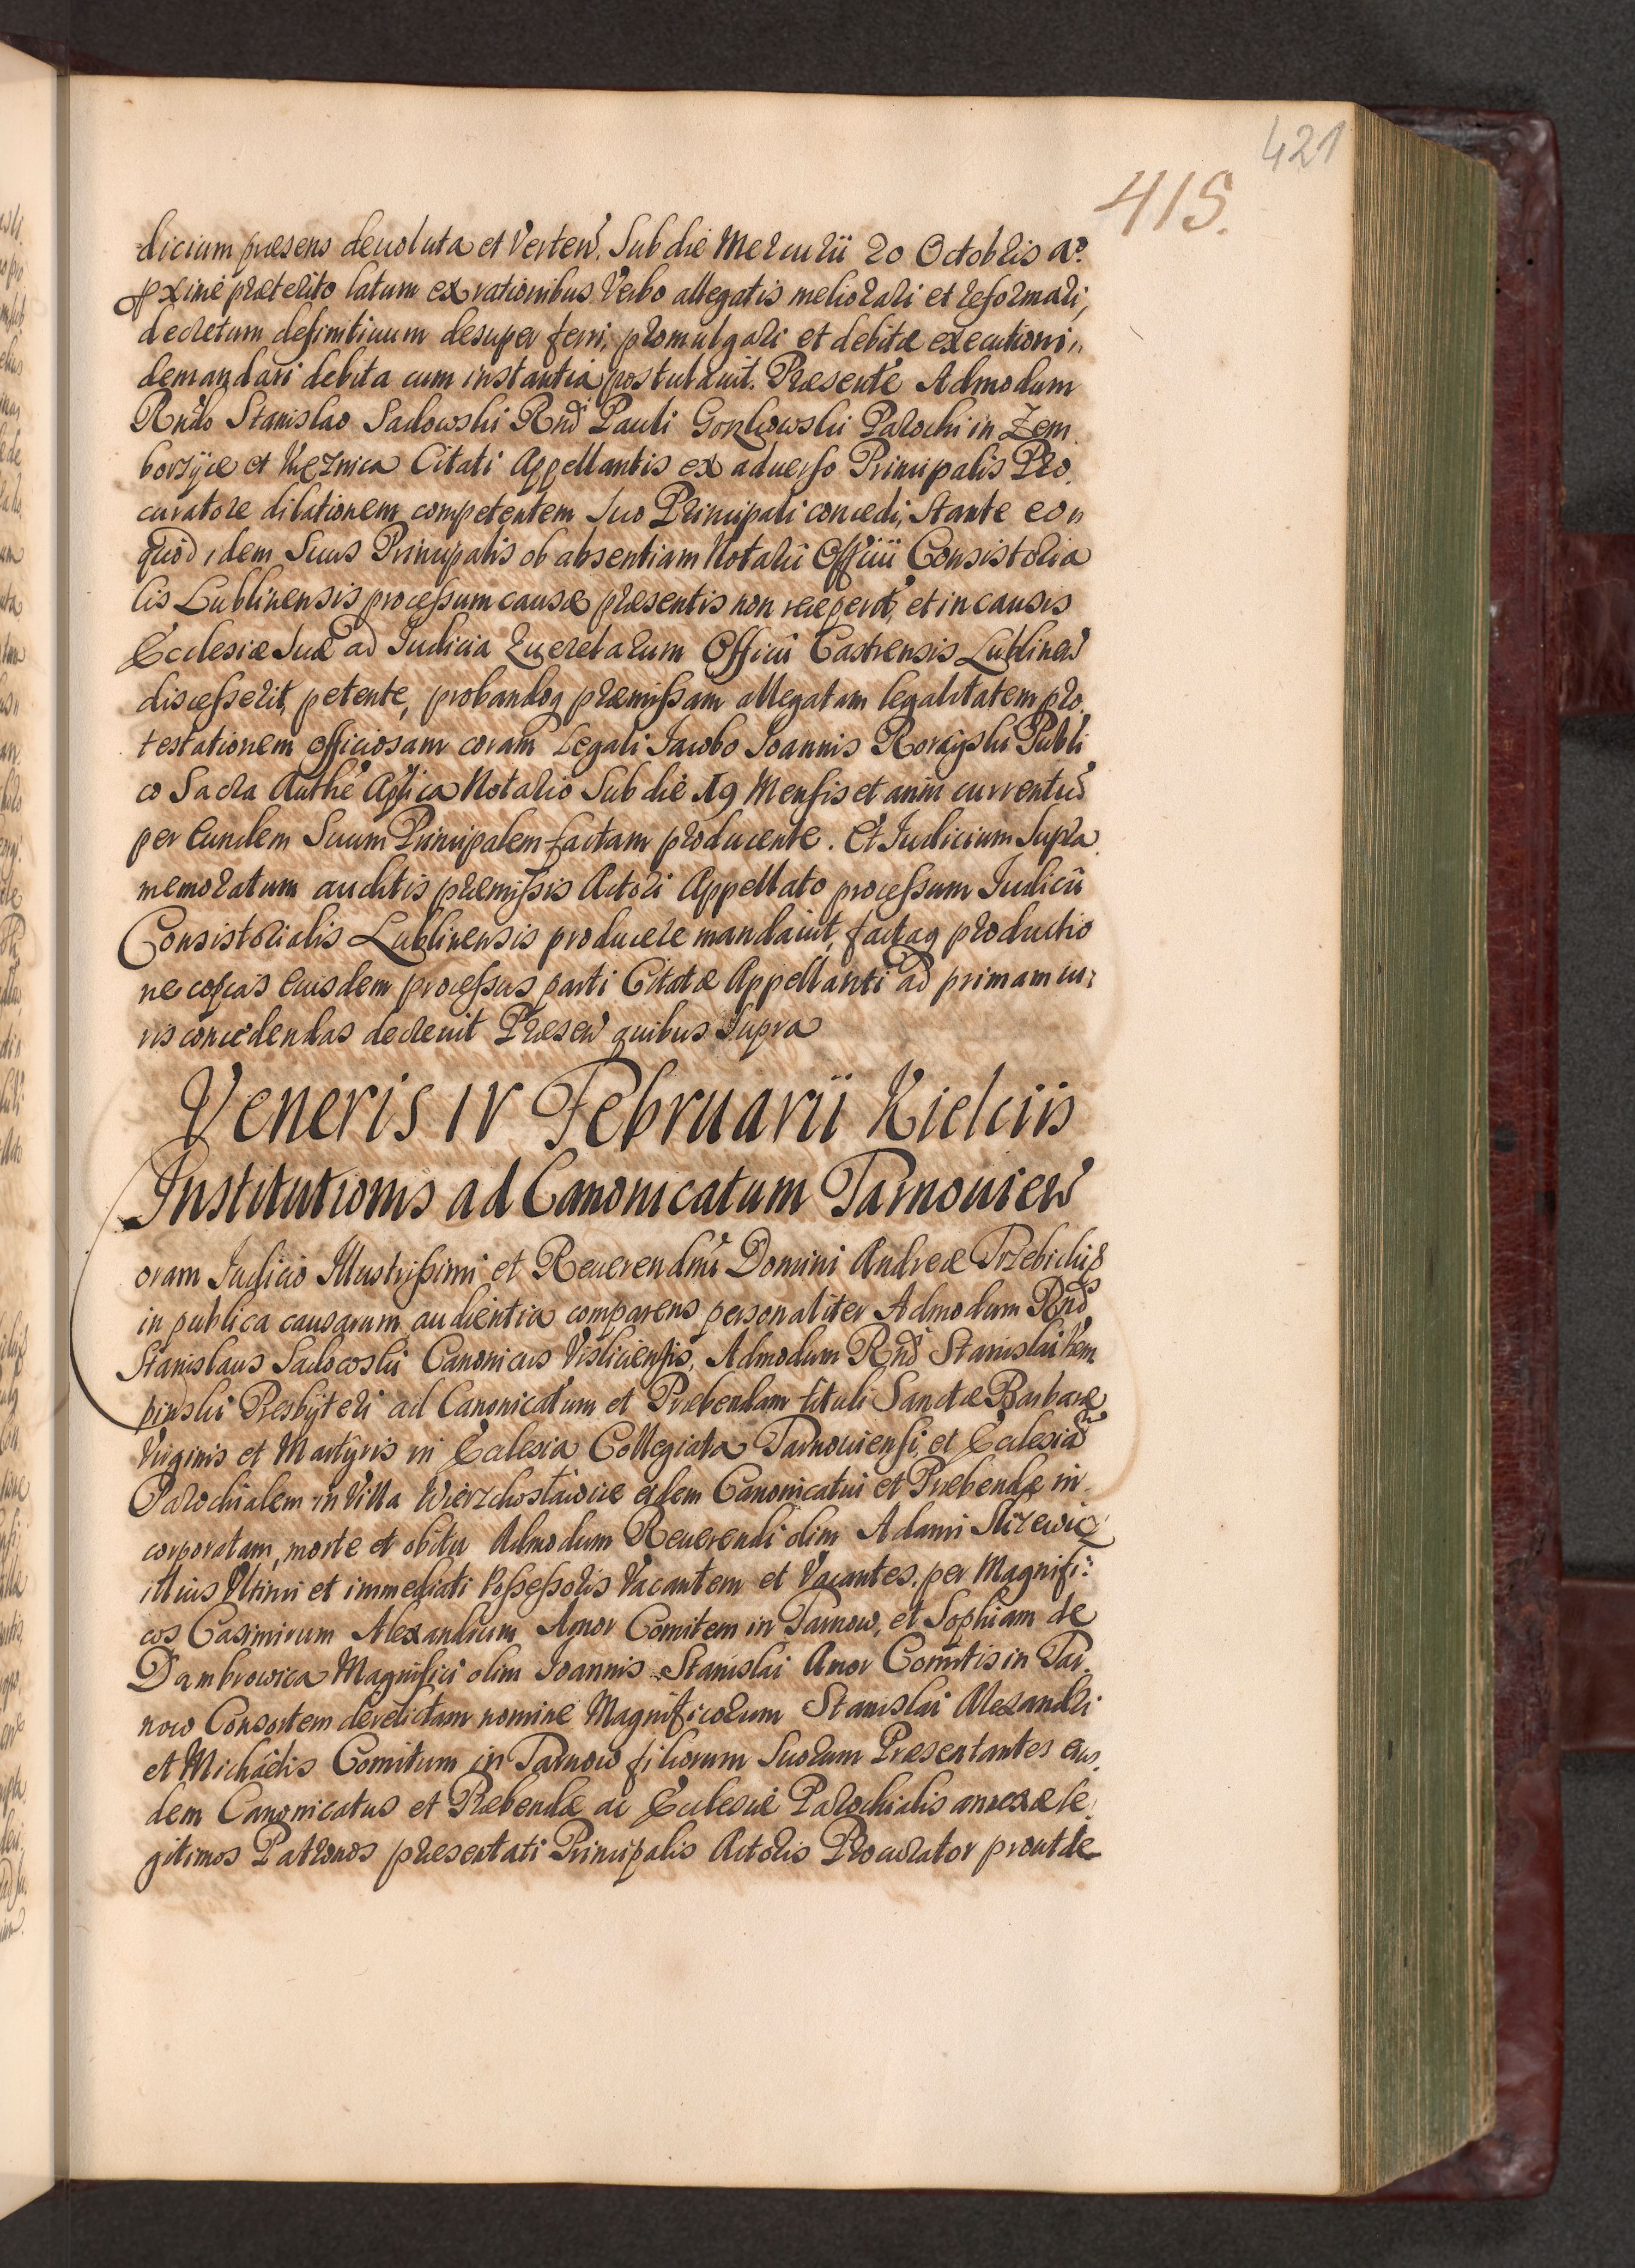 421
415.
dicium præsens deuoluta et Verteñ. Sub die Mercurii 20 Octobris aº
pxime præterito latum ex rationibus Verbo allegatis meliorari et reformari,
decretum definitiuum desuper ferri, promulgari et debitæ executioni
demandari debita cum instantia postulauit. Præsente Admodum
Rndo Stanislao Sadowski Rndi Pauli Parochi in Zem
borzÿce et Citati Appellantis ex aduerso Principalis Pro
curatore dilationem competentem suo Principali concedi, Stante eo
quod idem Suus Principalis ob absentiam Notarii Officii Consistoria
lis Lublinensis processum causæ præsentis non receperit, et in causis
Ecclesiæ Suæ ad Iudicia Officii Castrensis Lublineñ
discesserit, petente, probandoq præmissam allegatam legalitatem pro
testationem officiosam coram Legali Iacobo Ioannis Publi
co Sacra Authe Aplica Notario Sub die 19 Mensis et anni currentis
per Eundem Suum Principalem factam producente. Et Iudicium Supra
memoratum auditis præmissis Actori Appellato processum Iudicii
Consistorialis Lublinensis producere mandauit, factaq productio
ne copias Eiusdem processus parti Citatæ Appellanti ad primam iu
ris concedendas decreuit Præseñ quibus Supra
Veneris IV Februarii Kielciis
Institutionis ad Canonicatum Tarnouieñ
Coram Iudicio Illustrissimi et Reuerendmi Domini Andreæ Trzebicki &
in publica causarum audientia comparens personaliter Admodum Rnds
Stanislaus Sadowski Canonicus Visliciensis, Admodum Rndi Stanislai Kem
pinski Presbÿteri ad Canonicatum et Præbendam tituli Sanctæ Barbaræ
Virginis et Martÿris in Ecclesia Collegiata Tarnouiensi et Ecclesiam
Parochialem in Villa Wierzchosławice eidem Canonicatui et Præbendæ in
corporatam, morte et obitu Admodum Reuerendi olim Adami
illius Vltimi et immediati Possessoris Vacantem et Vacantes, per Magnifi
cos Casimirum Alexandrum Amor Comitem in Tarnow, et Sophiam de
Dambrowica Magnifici olim Ioannis Stanislai Amor Comitis in Tar
now Consortem derelictam nomine Magnificorum Stanislai Alexandri
et Michaelis Comitum in Tarnow filiorum Suorum Præsentantes eius
dem Canonicatus et Præbendæ ac Ecclesiæ Parochialis annexæ le
gitimos Patronos præsentati Principalis Actoris Procurator prout de